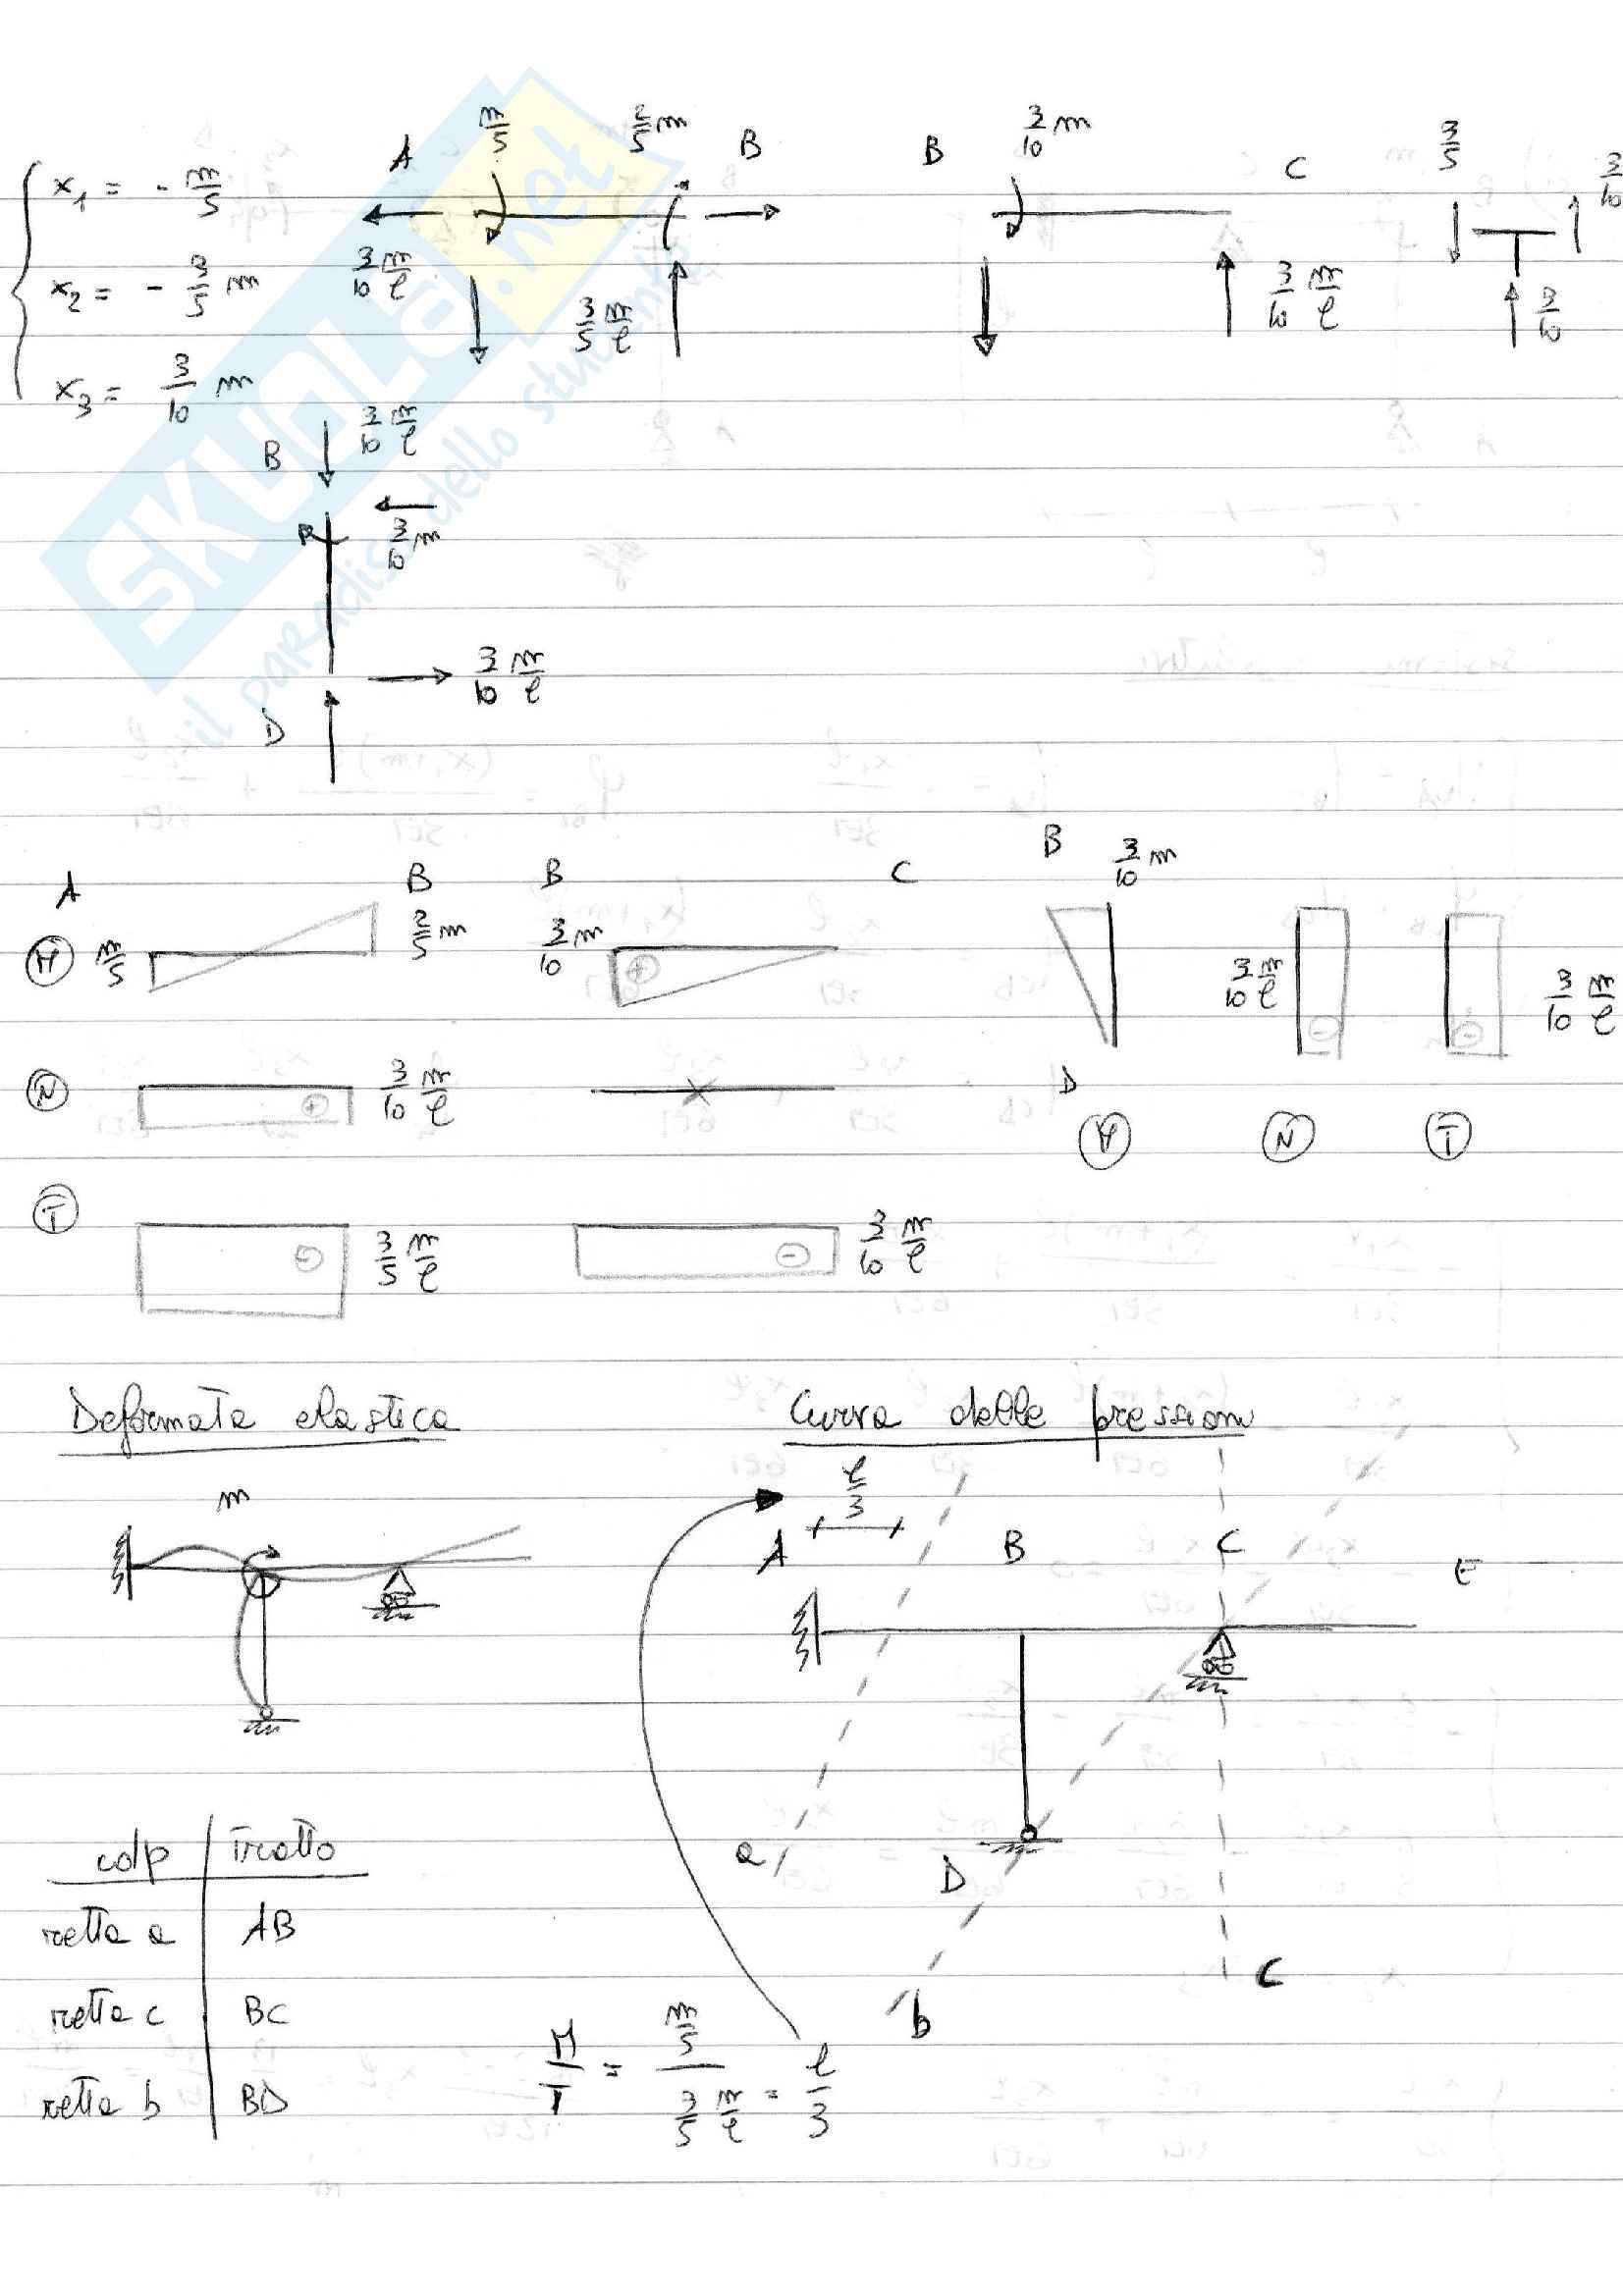 x₁ = - m/5
x₂ = - 2/5 m
x₃ = 3/10 m
A m/5 2/5 m B
3/10 m/l 3/5 m/l
B 3/10 m C
3/10 m/l
3/5 3/10
3/10
B 3/10 m/l
3/10 m
D 3/10 m/l
A B B C B 3/10 m
M m/5 2/5 m 3/10 m + 3/10 m/l - - 3/10 m/l
N + 3/10 m/l D
M N T
T - 3/5 m/l - 3/10 m/l
Deformata elastica
Curva delle pressioni
m
l/3
A B C E
a D
b C
cdp Tratto
retta a AB
retta c BC
retta b BD
M/T = m/5 / 3/5 m/l = l/3
SKUOLA.net
il paradiso dello studente